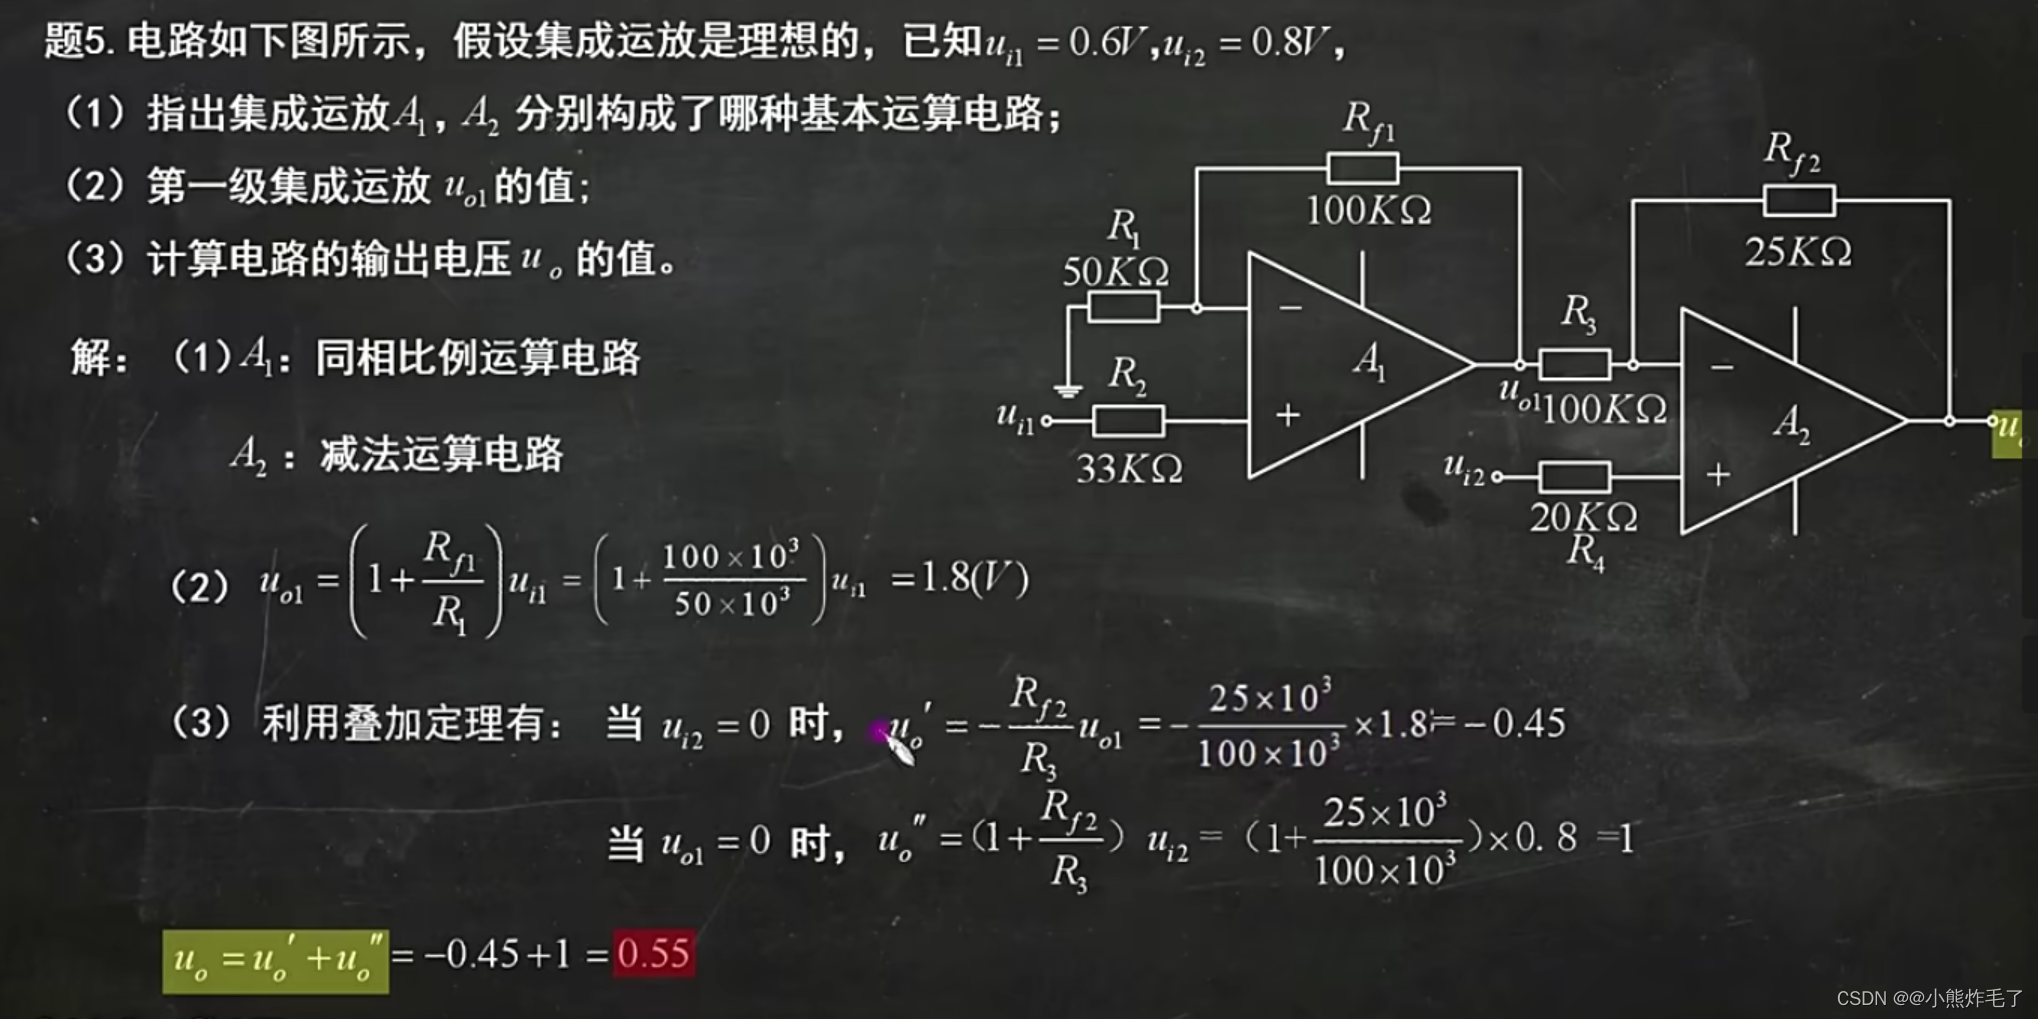 题5. 电路如下图所示，假设集成运放是理想的，已知 u_{i1} = 0.6V, u_{i2} = 0.8V，
（1）指出集成运放 A_1，A_2 分别构成了哪种基本运算电路；
（2）第一级集成运放 u_{o1} 的值；
（3）计算电路的输出电压 u_o 的值。
解：（1）A_1：同相比例运算电路
A_2：减法运算电路
（2） u_{o1} = (1+\frac{R_{f1}}{R_1}) u_{i1} = (1+\frac{100×10^3}{50×10^3}) u_{i1} = 1.8(V)
（3）利用叠加定理有： 当 u_{i2} = 0 时， u_o' = -\frac{R_{f2}}{R_3} u_{o1} = -\frac{25×10^3}{100×10^3} ×1.8 = -0.45
当 u_{o1} = 0 时， u_o'' = (1+\frac{R_{f2}}{R_3}) u_{i2} = (1+\frac{25×10^3}{100×10^3})×0.8 =1
u_o = u_o' + u_o'' = -0.45+1 = 0.55
R_{f1}
100KΩ
R_1
50KΩ
−
A_1
+
R_2
u_{i1}
33KΩ
R_{f2}
25KΩ
R_3
u_{o1}
100KΩ
−
A_2
+
u_{i2}
20KΩ
R_4
CSDN @@小熊炸毛了